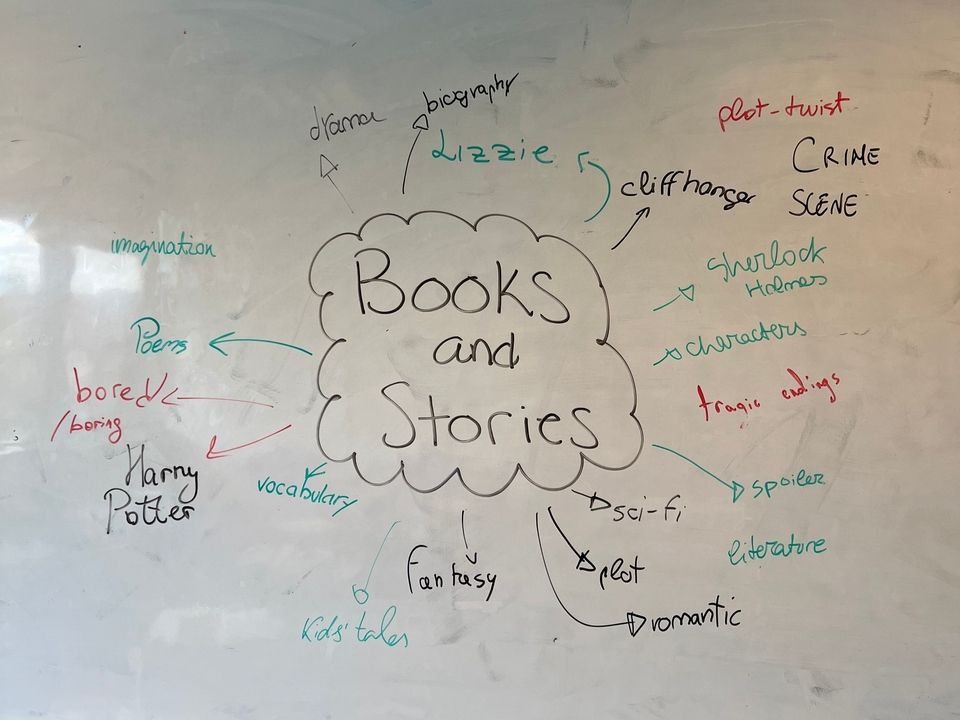 drama
biography
Lizzie
plot-twist
CRIME
SCENE
cliffhanger
imagination
Books
and
Stories
Sherlock
Holmes
Poems
characters
bored
/boring
tragic endings
Harry
Potter
vocabulary
spoiler
sci-fi
literature
Fantasy
plot
romantic
Kids' tales